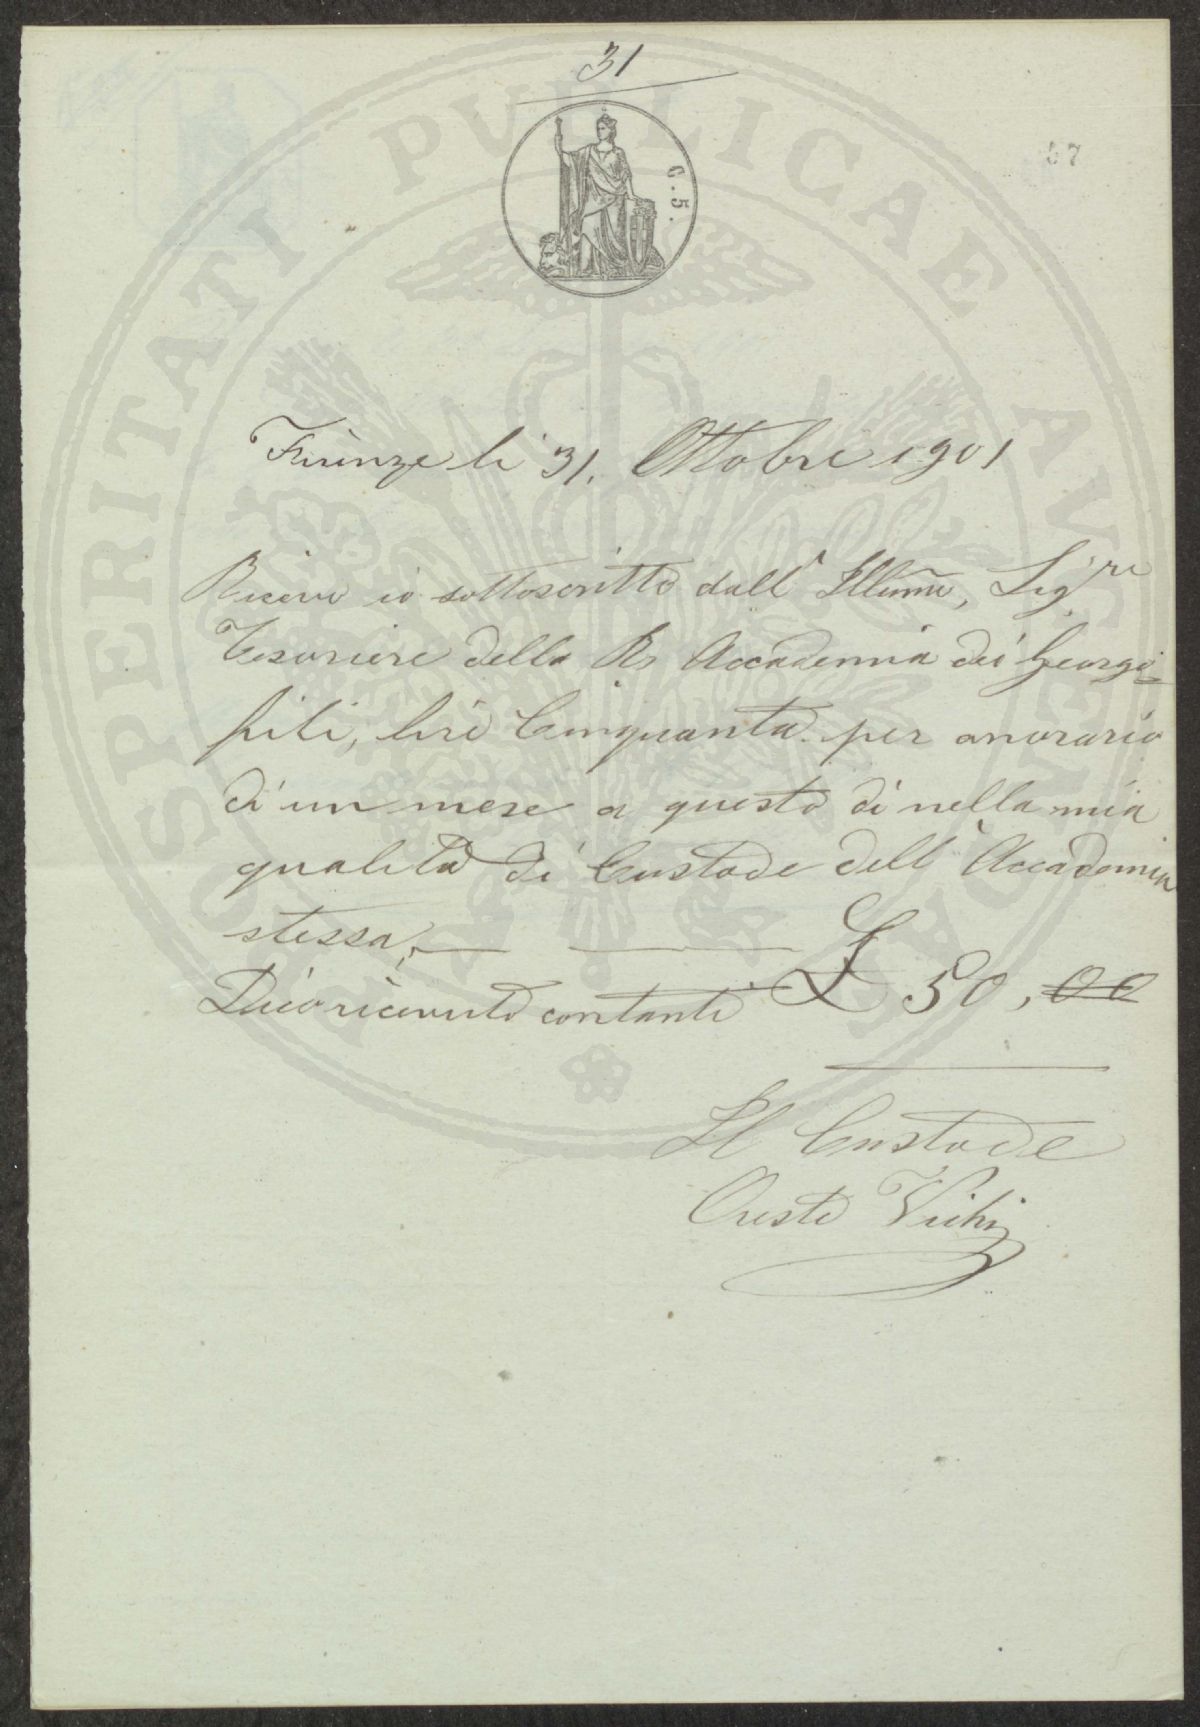 31
C. 5.
57
PROSPERITATI PUBLICAE AUGENDAE
Firenze li 31. Ottobre 1901
Ricevo io sottoscritto dall' Illumo, Sigre
Tesoriere della R. Accademia dei Georgo=
fili, lire Cinquanta per onorario
di un mese a questo dì nella mia
qualità di Custode dell' Accademia
stessa,
Dico ricevuto contanti £ 50,00
Il Custode
Oreste Vichi